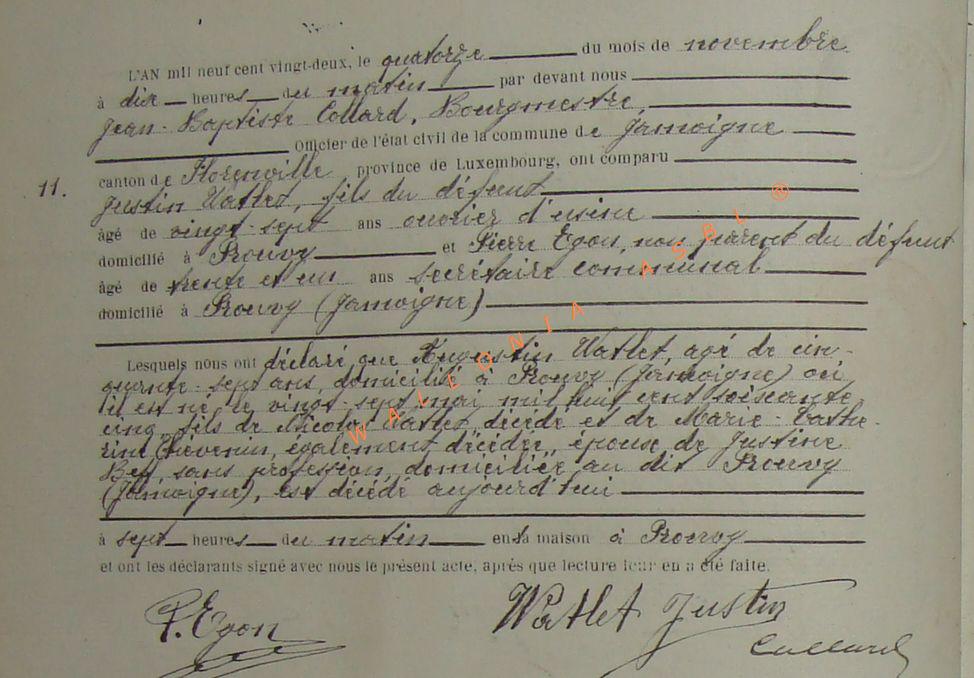 L'AN mil neuf cent vingt-deux, le quatorze du mois de novembre
à dix heures du matin par devant nous
Jean-Baptiste Collard, Bourgmestre,
Officier de l'état civil de la commune de Jamoigne
canton de Florenville province de Luxembourg, ont comparu
11.
Justin Watlet, fils du défunt
âgé de vingt-sept ans ouvrier d'usine
domicilié à Prouvy et Pierre Egon, non parent du défunt
âgé de trente et un ans secrétaire communal
domicilié à Prouvy (Jamoigne)
Lesquels nous ont déclaré que Augustin Watlet, agé de cin-
quante-sept ans, domicilié à Prouvy (Jamoigne) où
il est né le vingt-sept mai mil huit cent soixante
cinq, fils de Nicolas Watlet, décédé et de Marie-Cathe-
rine Thévenin, également décédée, épouse de Justine
sans profession, domiciliée au dit Prouvy
(Jamoigne), est décédé aujourd'hui
à sept heures du matin en sa maison à Prouvy
et ont les déclarants signé avec nous le présent acte, après que lecture leur en a été faite.
P. Egon
Watlet Justin
Collard
WALEGNIA ASBL ®